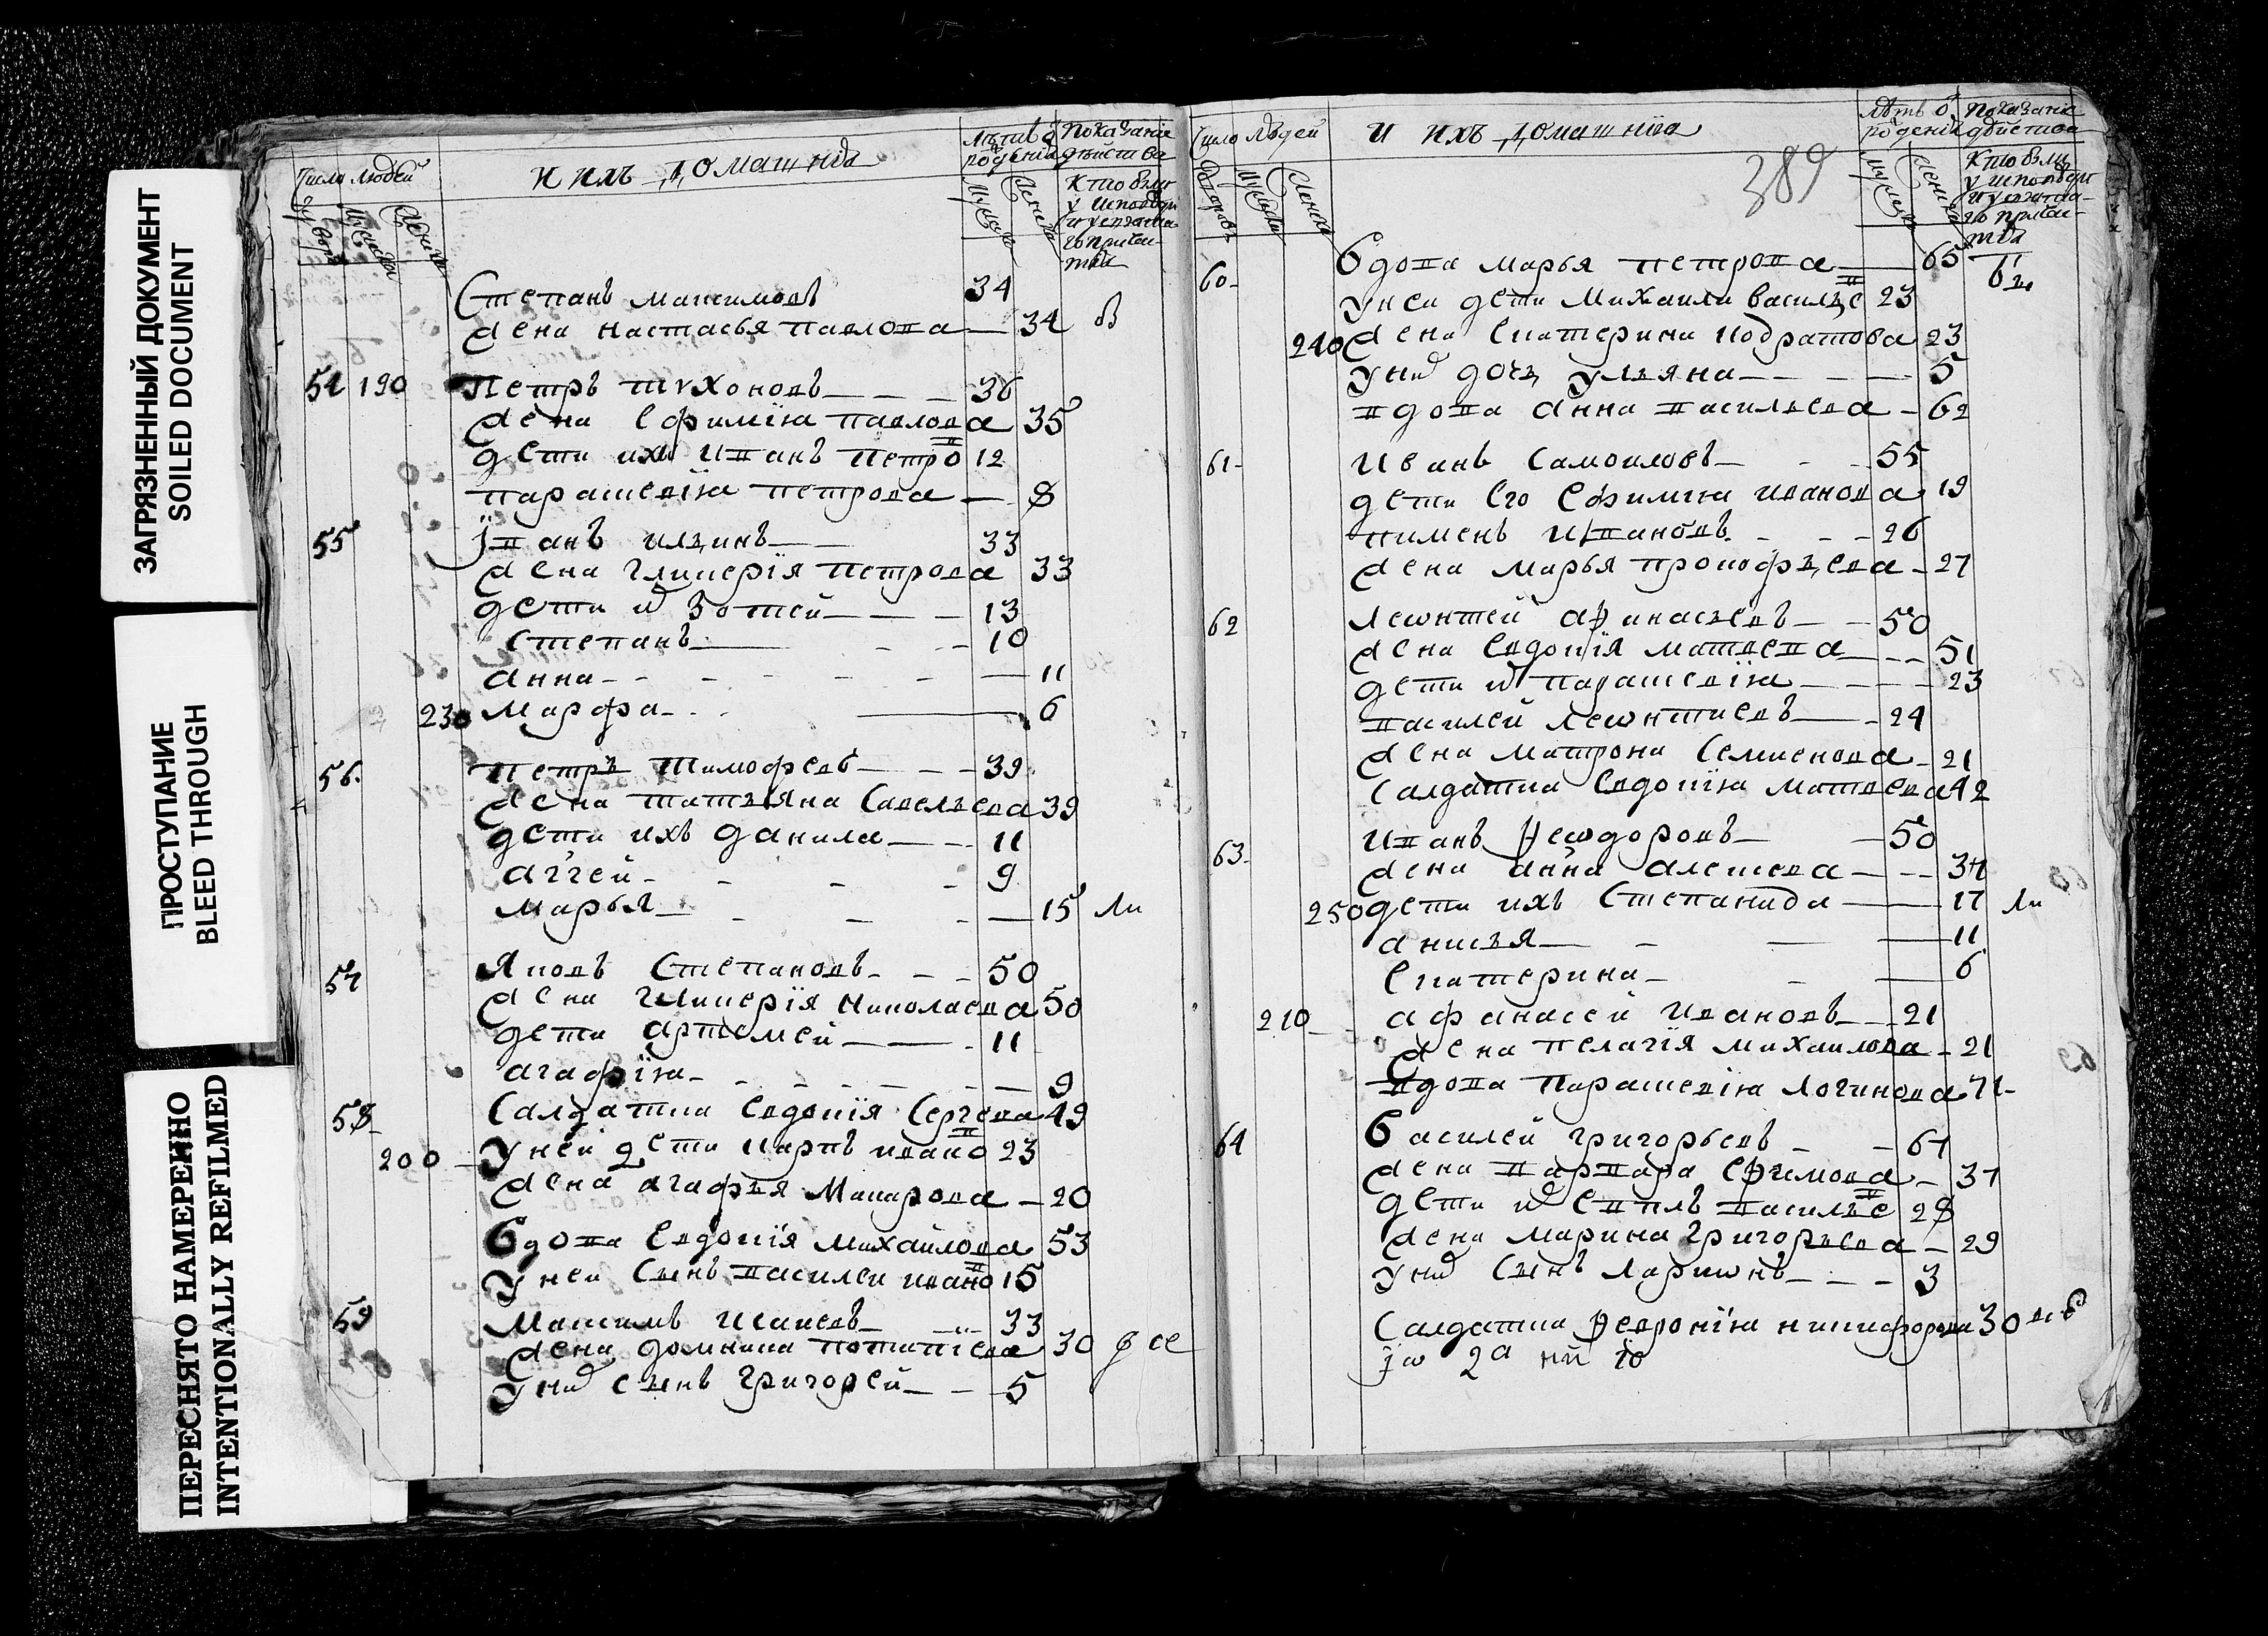 ЗАГРЯЗНЕННЫЙ ДОКУМЕНТ
SOILED DOCUMENT
ПРОСТУПАНИЕ
BLEED THROUGH
ПЕРЕСНЯТО НАМЕРЕННО
INTENTIONALLY REFILMED
Число людей
и ихъ домашнiя
показанiе
Степанъ максимовъ 34
жена настасья павлова — 34
54 190 Петръ тихоновъ — 36
жена Ефимiя павлова 35
дети ихъ иванъ петро 12
парасковiя петрова — 8
55 Їванъ илинъ — 33
жена гликерiя петрова 33
дети и Зотей — 13
Степанъ — 10
анна — 11
230 Марфа — 6
56. петръ тимофеевъ — 39
жена татьяна Савельева 39
дети ихъ данила — 11
аггей — 9
марья — 15
57 Яковъ Степановъ — 50
жена гликерiя николаева 50
дети артемей — 11
агафiя — 9
58 Салдатка Евдокiя Сергева 49
200 у ней дети карпъ ивано 23
жена агафья Макарова — 20
вдова Евдокiя михаилова 53
у ней сынъ василей ивано 15
59 Максимъ Исаиевъ 33
жена домника потапiева 30
у ни сынъ григорей — 5
Число людей
и ихъ домашнiя
389
60 вдова марья петрова — 65
у неи дети михаила василье 23
240 жена Екатерина кодратова 23
у ни дочь ульяна — 5
вдова анна васильева — 62
61 иванъ Самоиловъ — 55
дети его Ефимiя иванова 19
пимень ивановъ — 26
жена марья прокофьева — 27
62 леѡнтей афанасьевъ — 50
жена Евдокiя матвева — 51
дети и парасковiя — 23
василей леѡнтиевъ — 24
жена матрона Семиенова — 21
Салдатка Евдокiя матвева 42
63 иванъ ѳеѡдоровъ — 50
жена анна алексева — 34
250 дети ихъ Степанида — 17
анисья — 11
Екатерина — 6
210 афанасей ивановъ — 21
жена пелагiя михаилова — 21
вдова парасковiя логинова 71
64 василей григорьевъ — 61
жена варвара Ефимова — 37
дети и василье 28
жена марина григорьева — 29
у ни сынъ лариѡнъ — 3
Салдатка ѳеврониiя никифорова 30